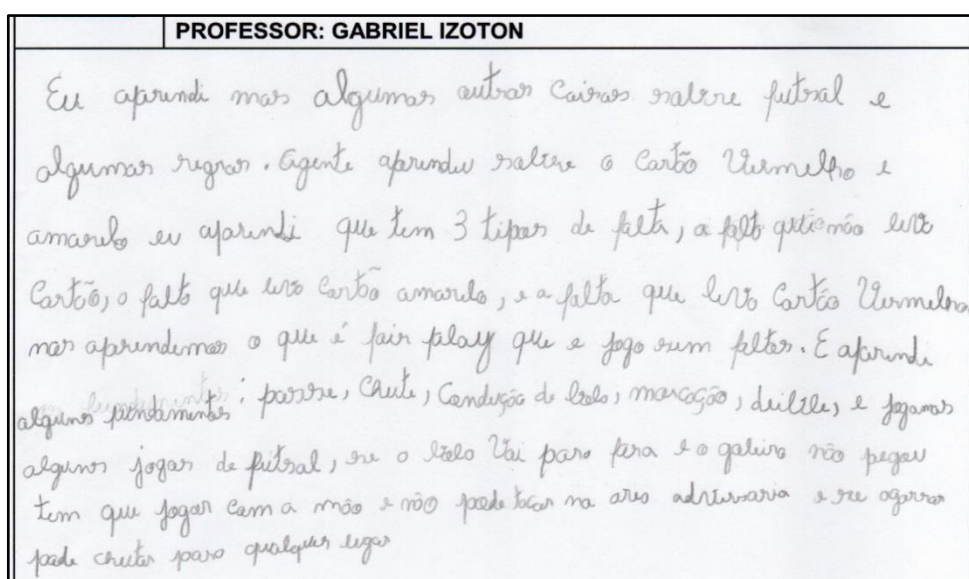 PROFESSOR: GABRIEL IZOTON
Eu aprendi mas algumas outras Coisas sobre futsal e
algumas regras. Agente aprendeu sobre o Cartão Vermelho e
amarelo eu aprendi que tem 3 tipos de falta, a falta que não leva
Cartão, o falta que leva Cartão amarelo, e a falta que leva Cartão Vermelho
nos aprendemos o que é fair play que e jogo sem faltas. E aprendi
alguns fundamentos: passe, Chute, Condução de bola, marcação, drible, e jogamos
alguns jogos de futsal, se o bola Vai para fora e o goleiro não pegou
tem que jogar com a mão e não pode tocar na area adversaria e se agarrar
pode chutar para qualquer lugar